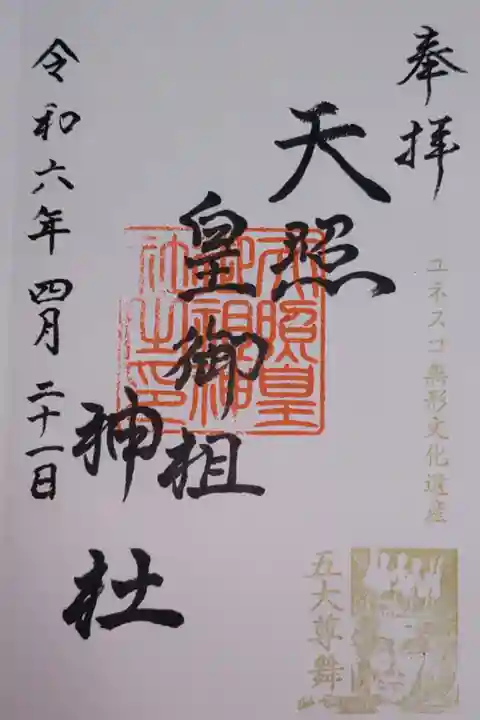 奉拝
ユネスコ無形文化遺産
五大尊舞
天照
皇御祖
神社
天照皇
御祖神
社之印
令和六年四月二十一日